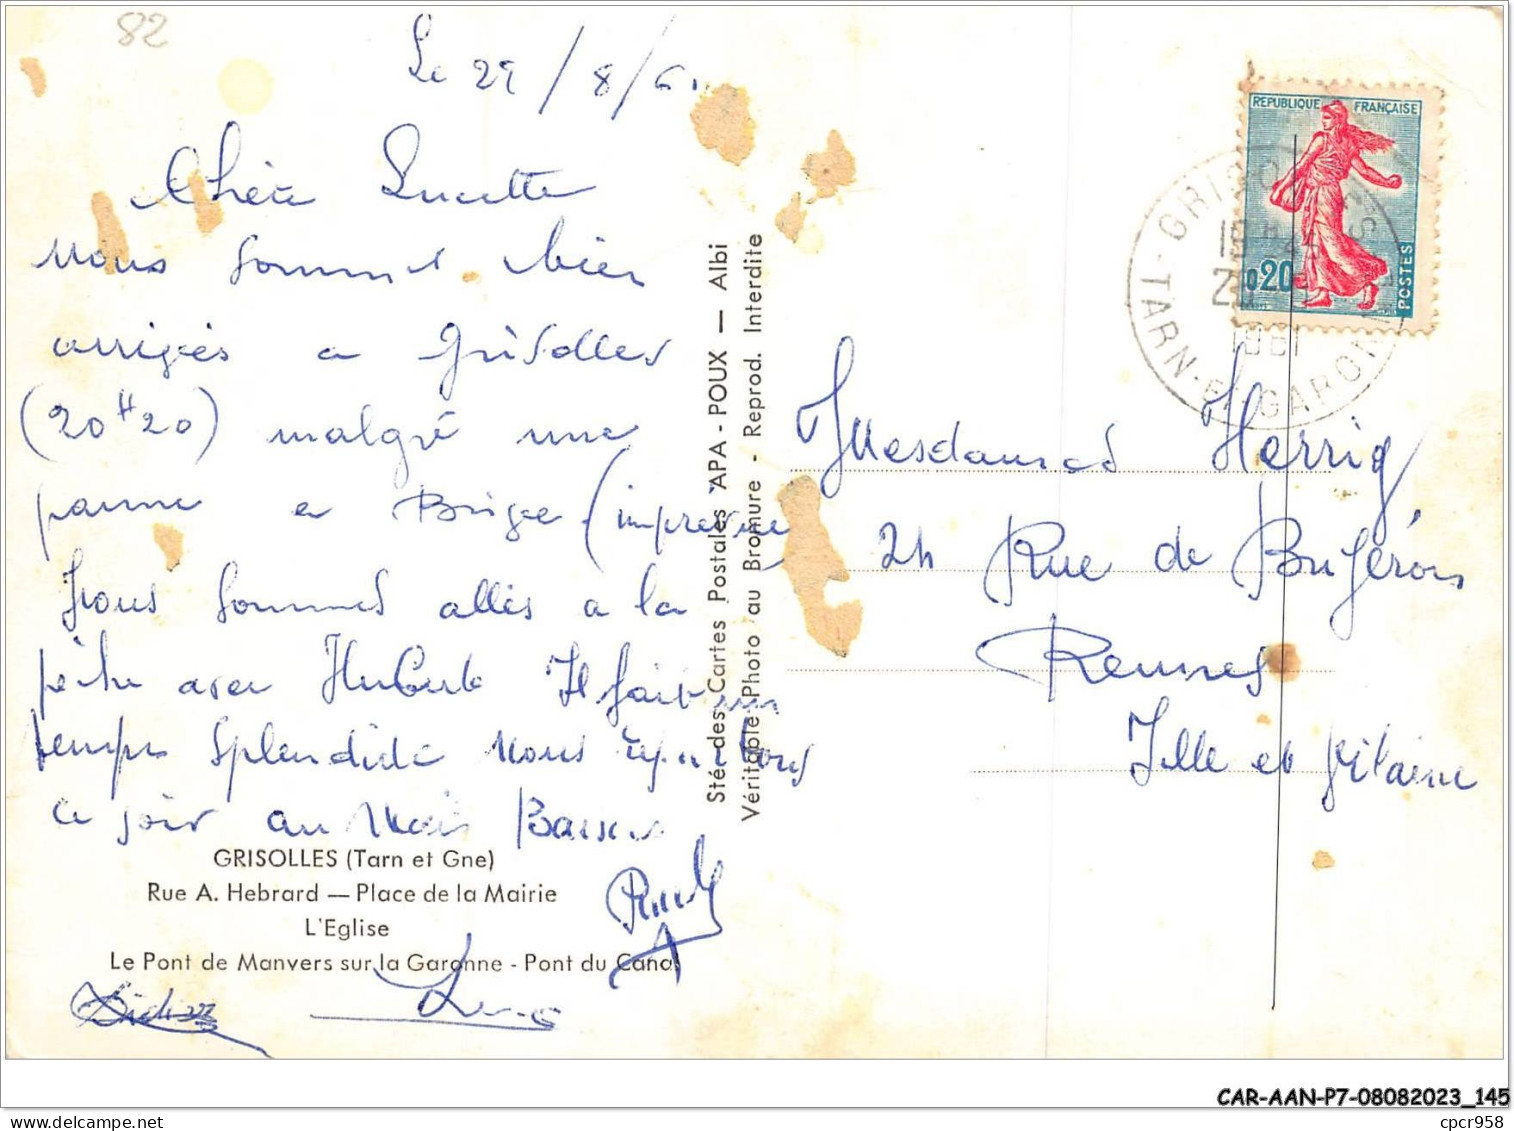 82
Le 29/8/61
Chère Lucette
nous sommes bien
arrivés a Grisolles
(20H20) malgré une
panne a Brive (imprevue
Nous sommes allés a la
pêche avec Hubert Il fait un
temps splendide Nous repartons
ce soir au Mois Baisers
GRISOLLES (Tarn et Gne)
Rue A. Hebrard — Place de la Mairie
L'Eglise
Le Pont de Manvers sur la Garonne - Pont du Canal
Didier
Sté des Cartes Postales APA - POUX — Albi
Véritable Photo au Bromure - Reprod. Interdite
REPUBLIQUE FRANÇAISE
0,20
POSTES
GRISOLLES
TARN-ET-GARONNE
1961
Mesdames Herrig
24 Rue de
Rennes
Ille et Vilaine
CAR-AAN-P7-08082023_145
delcampe.net
cpcr958